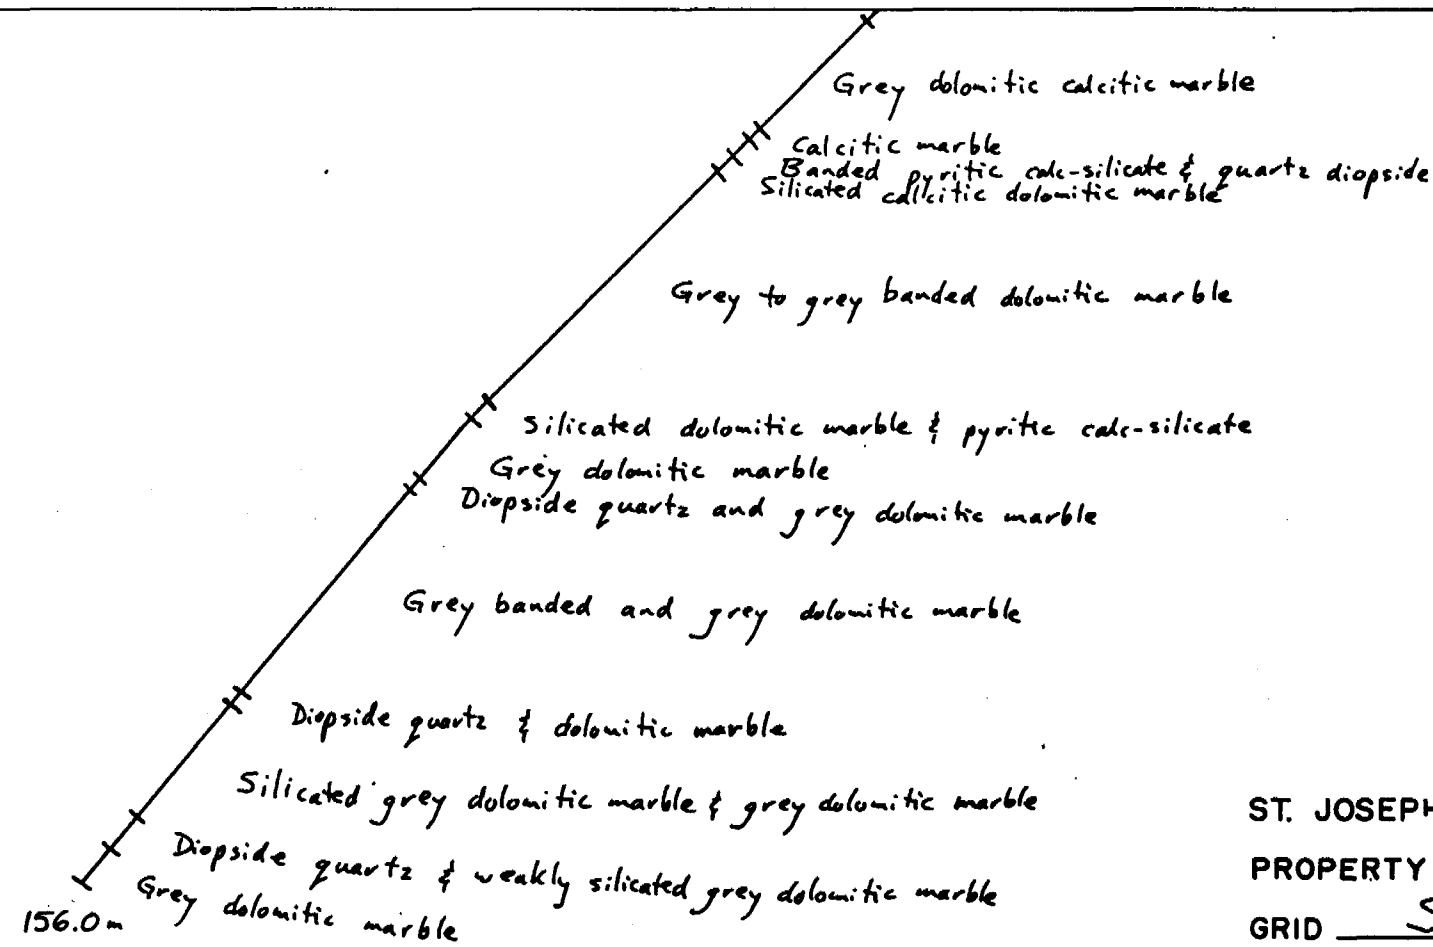 Grey dolomitic calcitic marble
Calcitic marble
Banded pyritic calc-silicate & quartz diopside
Silicated calcitic dolomitic marble
Grey to grey banded dolomitic marble
Silicated dolomitic marble & pyritic calc-silicate
Grey dolomitic marble
Diopside quartz and grey dolomitic marble
Grey banded and grey dolomitic marble
Diopside quartz & dolomitic marble
Silicated grey dolomitic marble & grey dolomitic marble
Diopside quartz & weakly silicated grey dolomitic marble
Grey dolomitic marble
156.0 m
ST. JOSEPH
PROPERTY
GRID